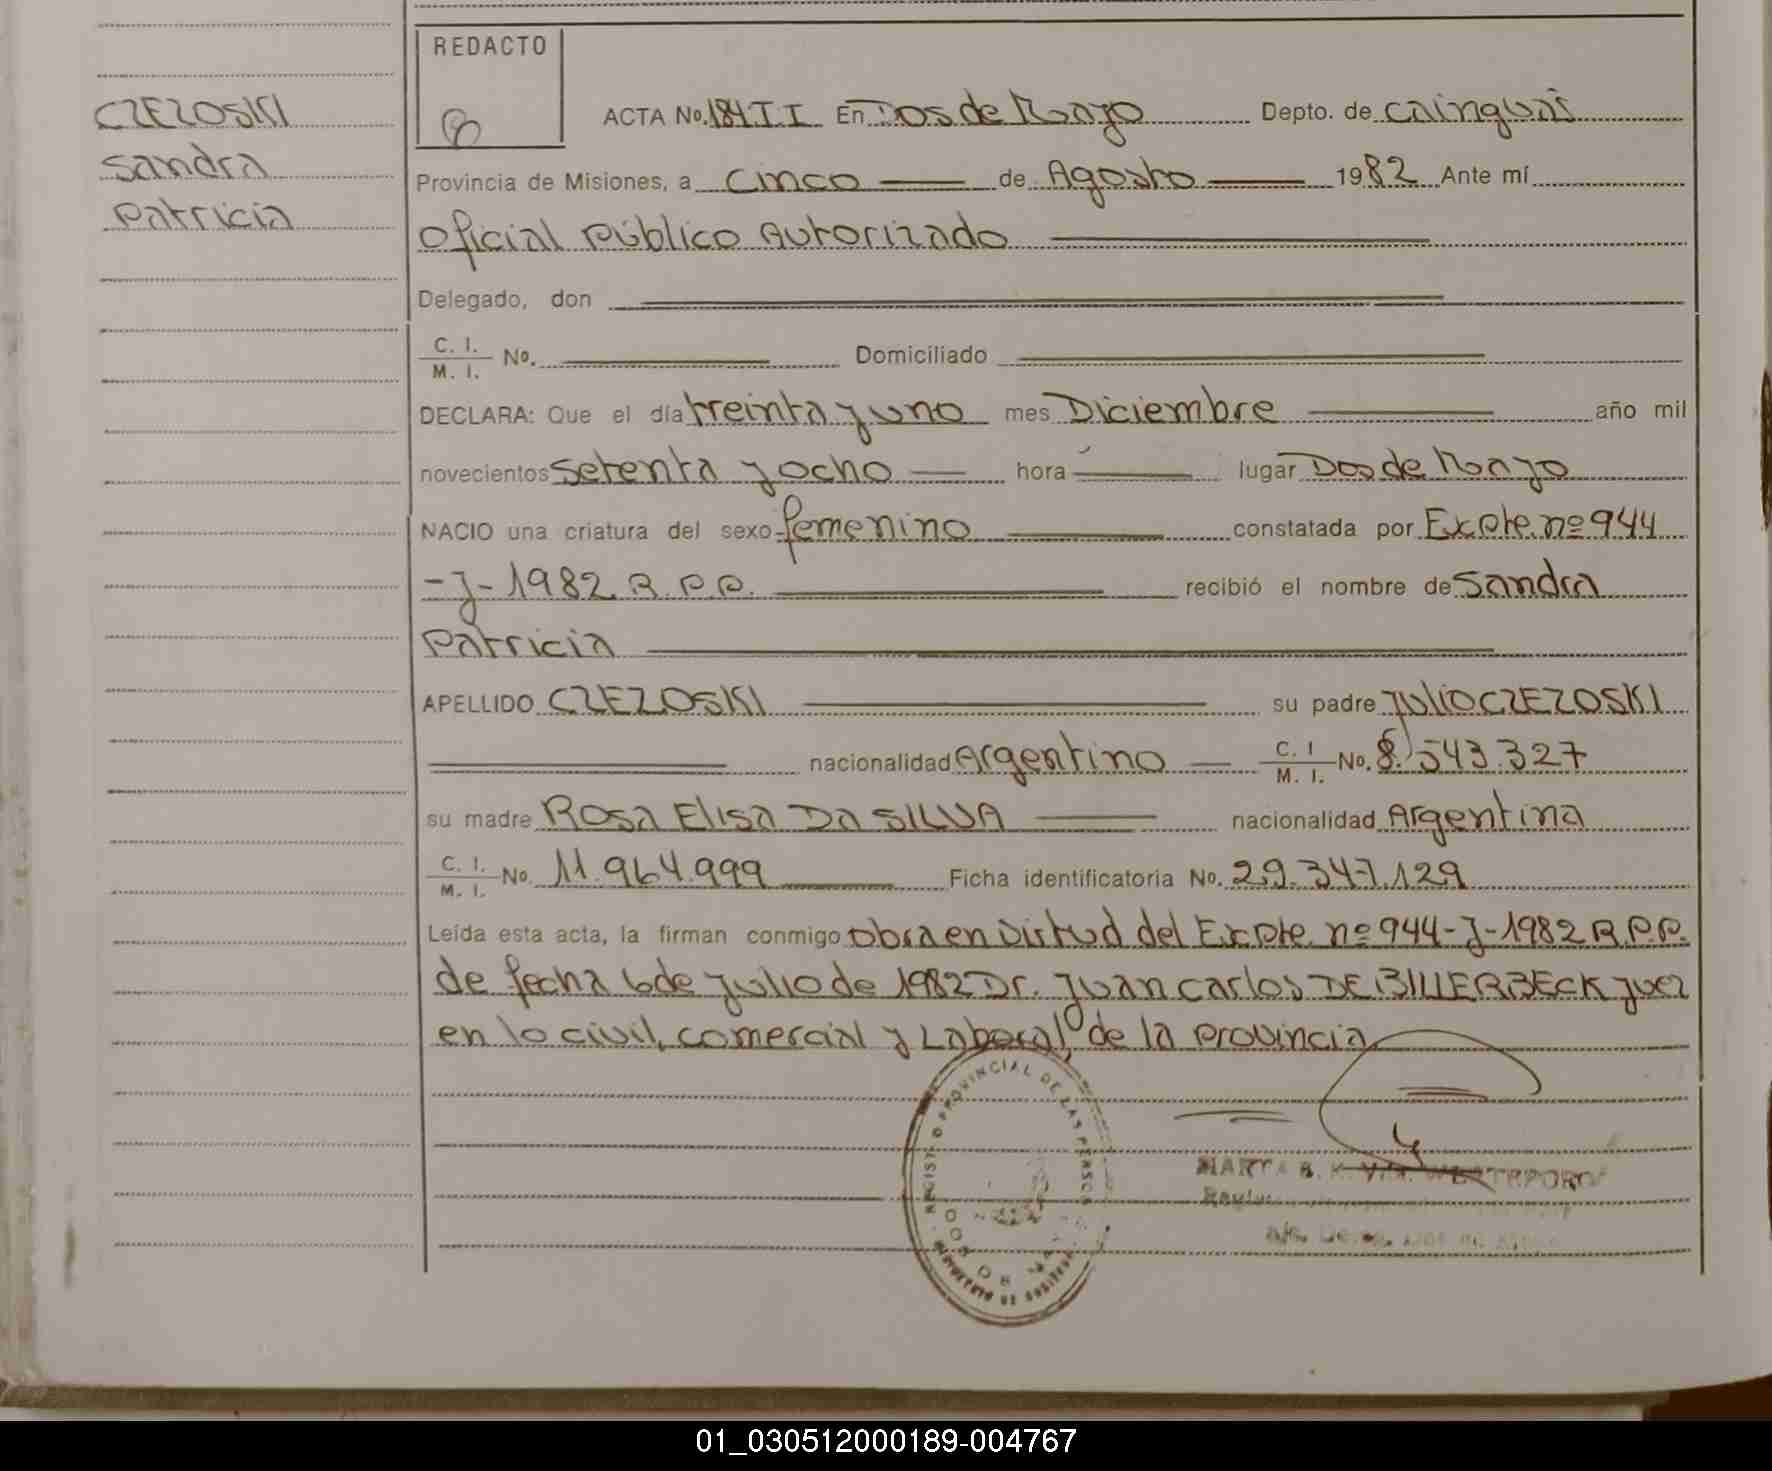 CZEZOSKI
Sandra
Patricia
REDACTO
ACTA No. 184 TI En Dos de Mayo Depto. de Cainguás
Provincia de Misiones, a Cinco de Agosto 1982 Ante mí
Oficial Público Autorizado
Delegado, don
C. I. M. I. No. Domiciliado
DECLARA: Que el día treinta y uno mes Diciembre año mil
novecientos setenta y ocho hora lugar Dos de Mayo
NACIO una criatura del sexo femenino constatada por Expte. nº 944
-J-1982 R.P.P. recibió el nombre de Sandra
Patricia
APELLIDO CZEZOSKI su padre JULIO CZEZOSKI
nacionalidad Argentino C. I M. I. No. 8.543.327
su madre ROSA ELISA DA SILVA nacionalidad Argentina
C. I. M. I. No. 11.964.999 Ficha identificatoria No. 29.347.129
Leída esta acta, la firman conmigo obra en virtud del Expte. nº 944-J-1982 R.P.P.
de fecha 6 de julio de 1982 Dr. Juan Carlos DE BILLERBECK Juez
en lo civil, comercial y Laboral, de la provincia
REGISTRO PROVINCIAL DE LAS PERSONAS
MARTA B. K.
01_030512000189-004767